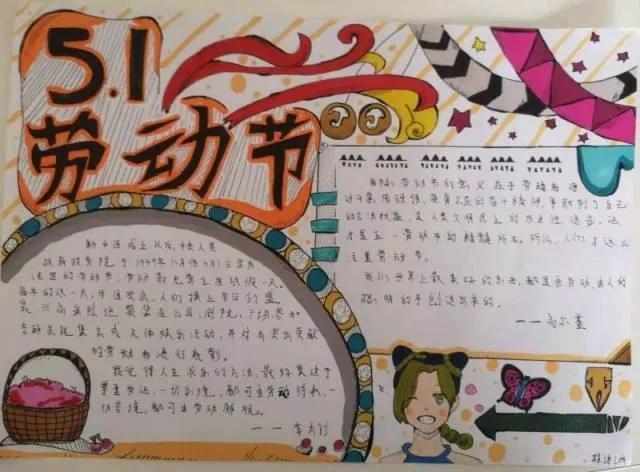 5.1
劳动节
J J
新中国成立以后,中央人民
政府政务院于1949年12月23日宣布
法定的劳动节,劳动最光荣全国放假一天。
每年的这一天,举国欢庆,人们换上节日的盛
装,兴高采烈地聚集在公园、剧院、广场,参加
各种庆祝集会或文体娱乐活动,并对有突出贡献
的劳动者进行表彰。
我觉得人生求乐的方法,最好莫过于
尊重劳动,一切乐境,都可由劳动得来,一
切苦境,都可由劳动解脱。
——李大钊
国际劳动节的意义在于劳动者通
过斗争,用顽强、英勇不屈的奋斗精神,争取到了自己
的合法权益,是人类文明民主的历史性进步,这
才是五一劳动节的精髓所在。所以,人们才这么
注重劳动节。
我们世界上最美好的东西,都是由劳动、由人的
聪明的手创造出来的。
——高尔基